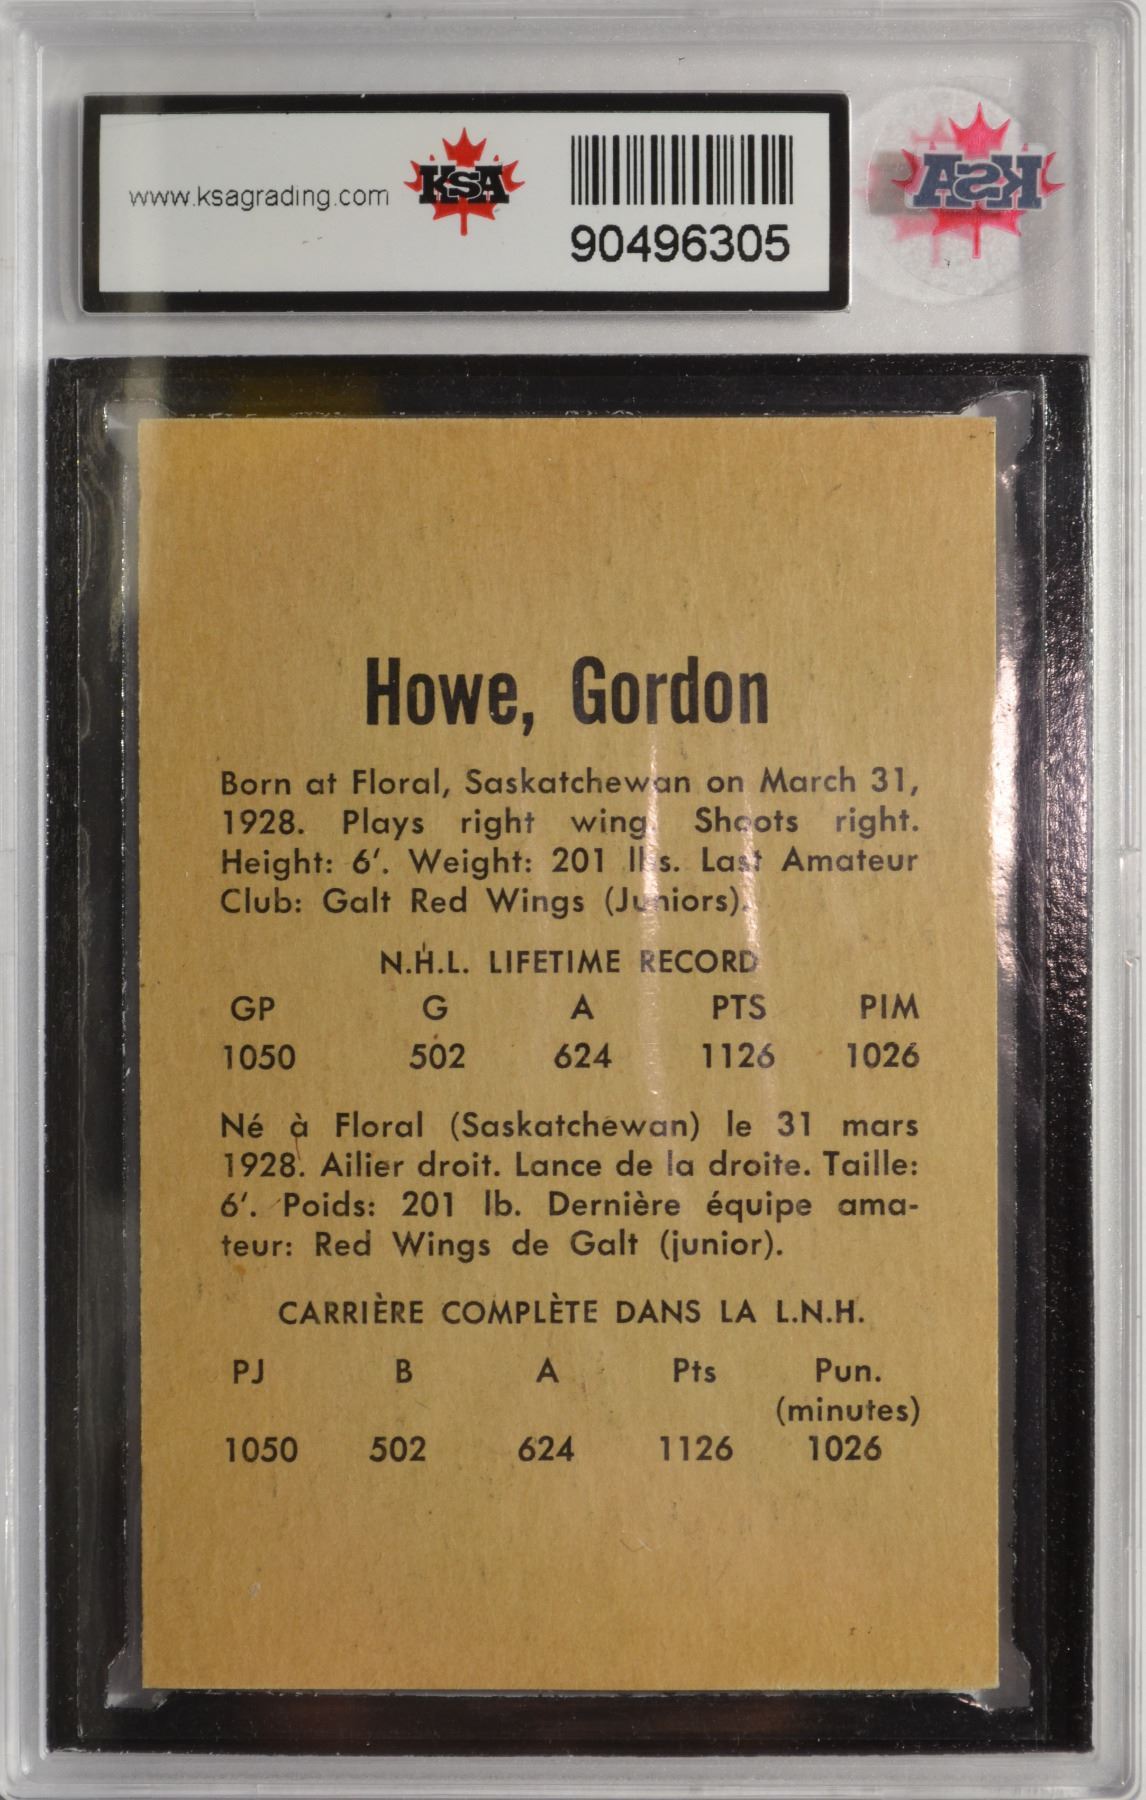 www.ksagrading.com
KSA
90496305
KSA
Howe, Gordon
Born at Floral, Saskatchewan on March 31,
1928. Plays right wing. Shoots right.
Height: 6'. Weight: 201 lbs. Last Amateur
Club: Galt Red Wings (Juniors).
N.H.L. LIFETIME RECORD
GP G A PTS PIM
1050 502 624 1126 1026
Né à Floral (Saskatchewan) le 31 mars
1928. Ailier droit. Lance de la droite. Taille:
6'. Poids: 201 lb. Dernière équipe ama-
teur: Red Wings de Galt (junior).
CARRIÈRE COMPLÈTE DANS LA L.N.H.
PJ B A Pts Pun.
(minutes)
1050 502 624 1126 1026